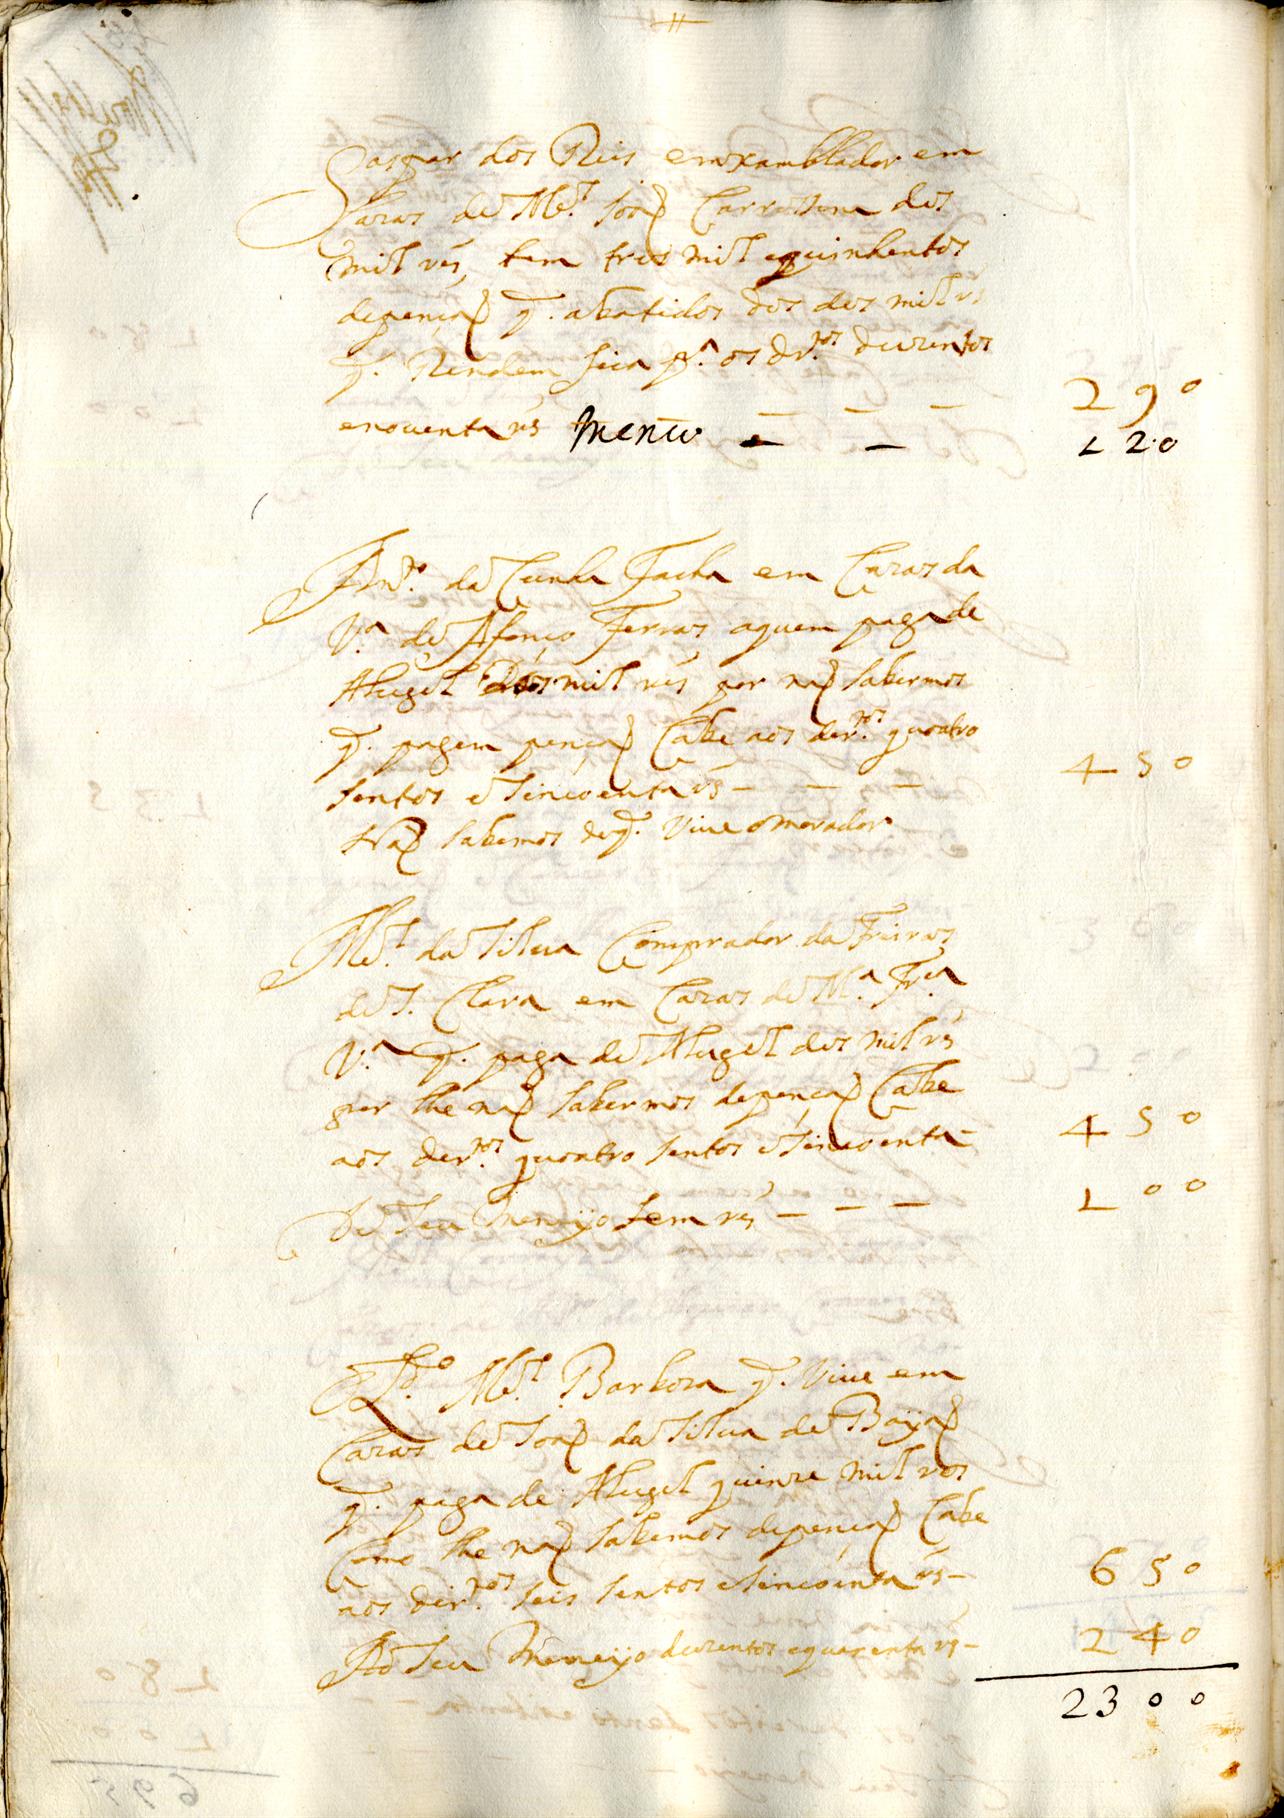 Gaspar dos Reis emxamblador em
Cazas de Mel. Joaõ Carrossona des
mil rés, tem tres mil equinhentos
depençaõ q. abatidos dos des mil rs
q. Rendem fica pa. os drtos. duzentos
enoventa rs 290
menco — — 120
Anto. da Cunha Tacha em Cazas da
Va. de Afonço Ferras aquem paga de
Alugel Des mil rés por naõ sabermos
q. pagem pençaõ Cabe aos dertos. quoatro
sentos e sincoenta rs — — — 450
Naõ sabemos de q. Vive o morador
Mel. da Silva Comprador da Freiras
de S. Clara em Cazas de Ma. Fra.
Va. q. paga de Alugel des mil rs
por lhe naõ sabermos depençaõ Cabe
aos dertos. quoatro sentos e sincoenta — 450
De seu meneyo sem rés — — — 100
O Ldo. Mel. Barboza q. Vive em
Cazas de Joaõ da Silva de Bayaõ
q. paga de Alugel quinze mil res
Como lhe naõ sabemos depençaõ Cabe
aos dirtos. seis sentos e sincoenta rs — 650
Ao seu meneyo duzentos equarenta rs — 240
2300